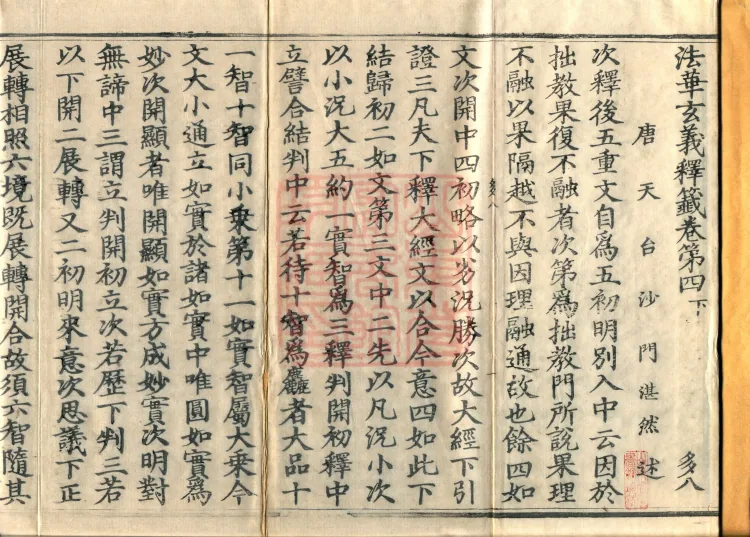 法華玄義釋籤卷第四下 多八
唐天台沙門湛然述
次釋後五重文自爲五初明別入中云因於
拙教果復不融者次第爲拙教門所說果理
不融以果隔越不與因理融通故也餘四如
多八
文次開中四初略以劣況勝次故大經下引
證三凡夫下釋大經文以合今意四如此下
結歸初二如文第三文中二先以凡況小次
以小況大五約一實智爲三釋判開初釋中
立譬合結判中云若待十智爲麤者大品十
一智十智同小乘第十一如實智屬大乘今
文大小通立如實於諸如實中唯圓如實爲
妙次開顯者唯開顯如實方成妙實次明對
無諦中三謂立判開初立次若歷下判三若
以下開二展轉又二初明來意次思議下正
展轉相照六境既展轉開合故須六智隨其